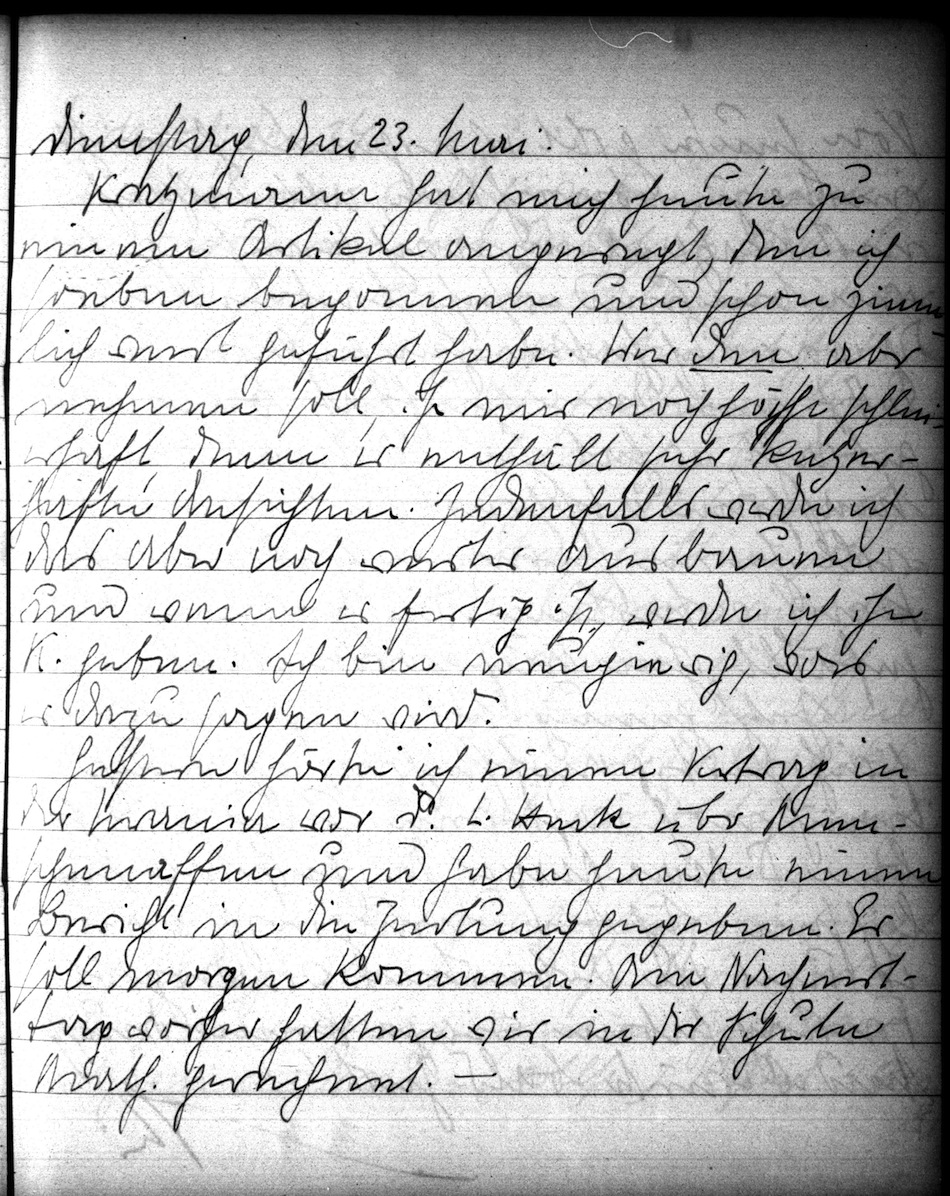 Dienstag, den 23. Mai.
Katzmann hat mich heute zu
einem Artikel angeregt, den ich
soeben begonnen und schon ziem-
lich weit geführt habe. Wer den ab-
nehmen soll, ist mir noch höchst schlei-
erhaft, denn er enthält sehr ketzer-
hafte Ansichten. Jedenfalls werde ich
das aber noch weiter ausbauen
und wenn er fertig ist, werde ich ihn
K. geben. Ich bin neugierig, was
er dazu sagen wird.
Gestern hörte ich einen Vortrag in
der Urania von Dr. L. Heck über Men-
schenaffen und habe heute einen
Bericht in die Zeitung gegeben. Er
soll morgen kommen. Am Nachmit-
tag vorher hatten wir in der Schule
Math. gerechnet. —